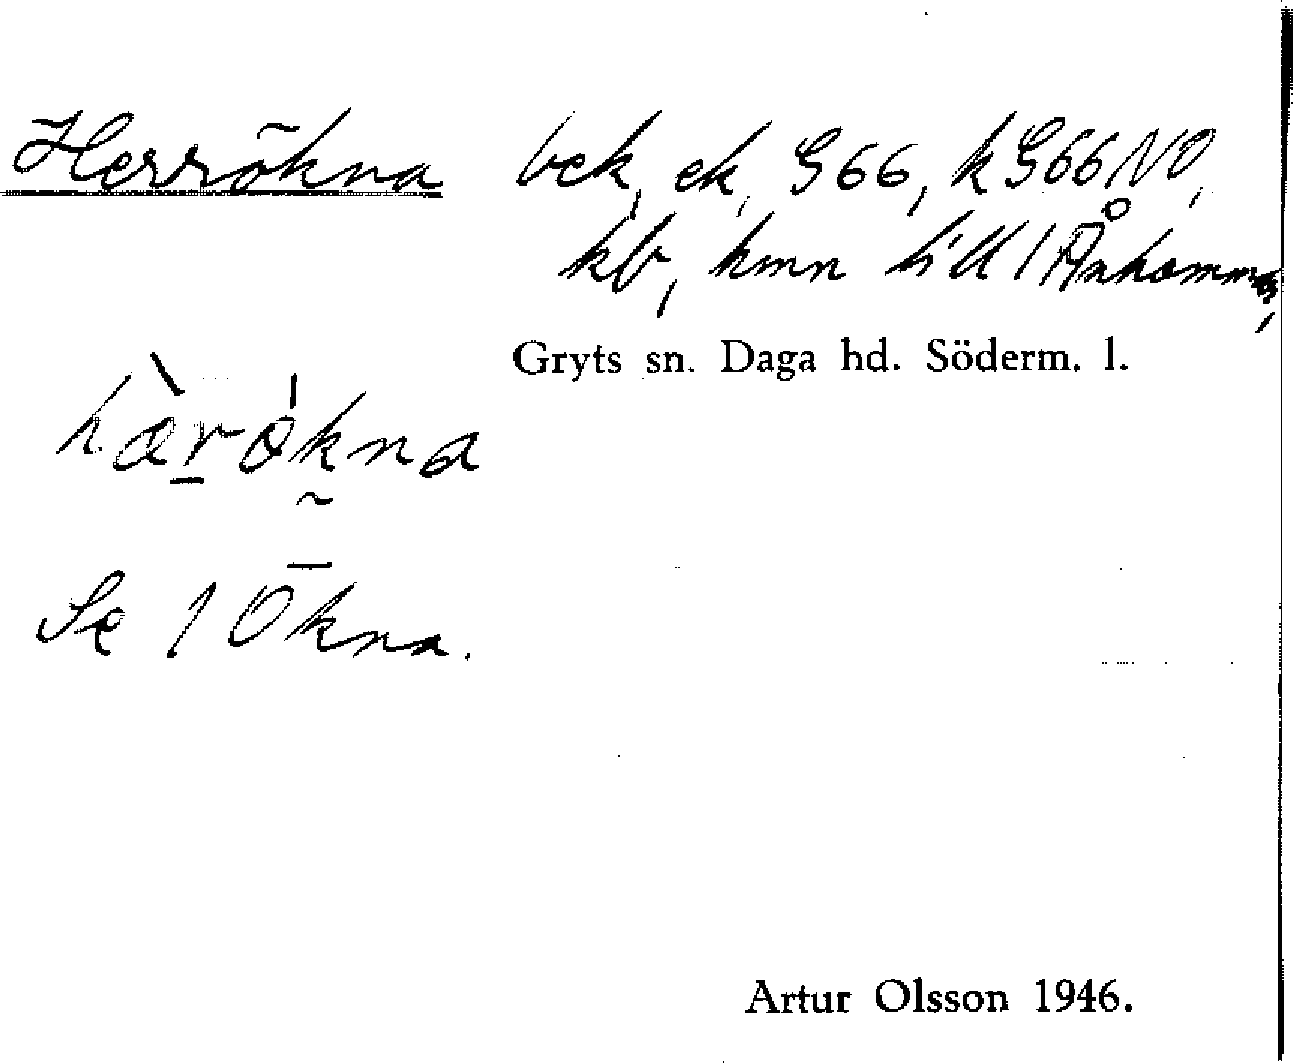 Herrökna bek, ek, G66, k G66 NO,
kb, hmn till 1 Ånhammar,
Gryts sn. Daga hd. Söderm. l.
hæ̀rø̍kna
Se 1 Ökna.
Artur Olsson 1946.